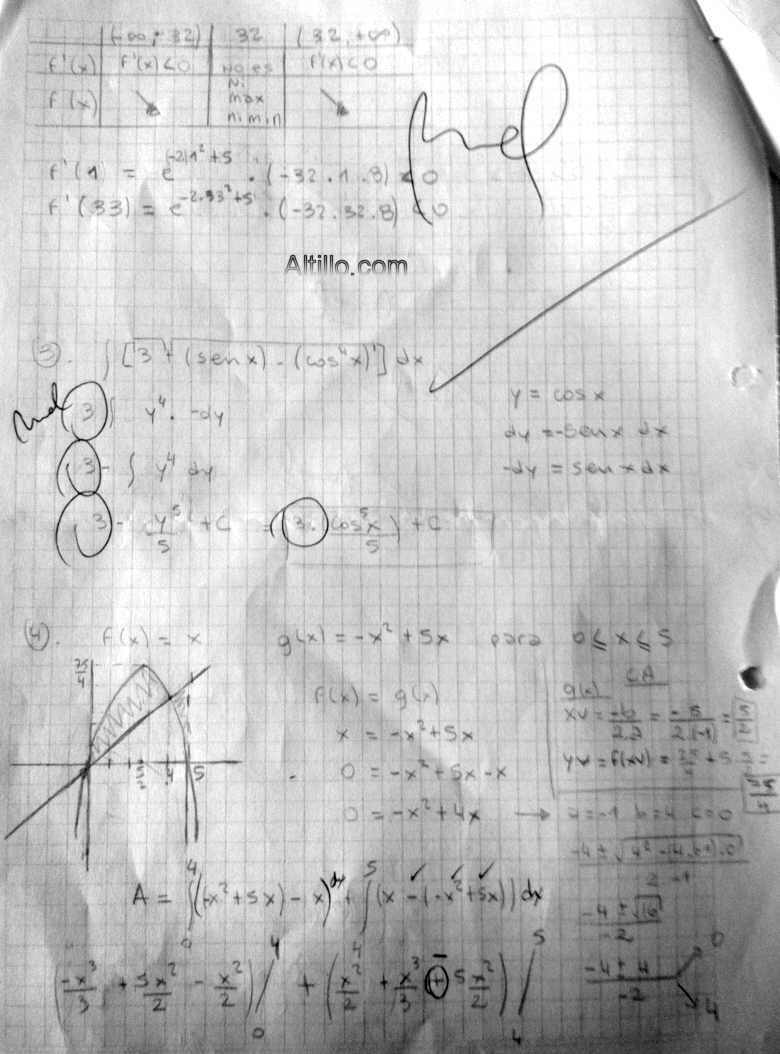 (-∞, 32) | 32 | (32, +∞)
f'(x) | f'(x) < 0 | NO ES | f'(x) < 0
f(x) | ↘ | Ni max ni min | ↘
Mal
f'(1) = e^(-2·1²+5) · (-32·1·8) < 0
f'(33) = e^(-2·33²+5) · (-32·32·8) < 0
Altillo.com
3). ∫ [3 + (sen x) - (cos⁴x)] dx
Mal
3 ∫ y⁴ · -dy
3 - ∫ y⁴ dy
3 - y⁵/5 + C = 3 · (cos⁵x/5) + C
y = cos x
dy = -sen x dx
-dy = sen x dx
4). f(x) = x g(x) = -x² + 5x para 0 ≤ x ≤ 5
25/4
5/2 4 5
f(x) = g(x)
x = -x² + 5x
0 = -x² + 5x - x
0 = -x² + 4x →
CA
g(x)
xv = -b/2.a = -5/2.(-1) = 5/2
yv = f(xv) =
25/4
a = -1 b = 4 c = 0
-4 ± √16 / -2
-4 ± 4 / -2
0
4
A = ∫₀⁴ ((-x² + 5x) - x) dx + ∫₄⁵ (x - (-x² + 5x)) dx
(-x³/3 + 5x²/2 - x²/2) /₀⁴ + (x²/2 + x³/3 + - 5x²/2) /₄⁵